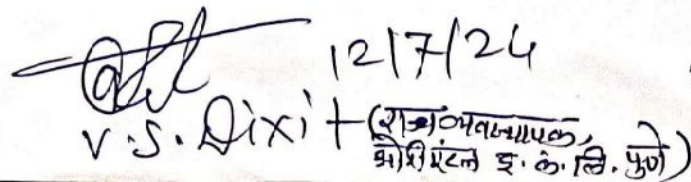 12/7/24
V.S. Dixit (राज्य व्यवस्थापक,
ओरिएंटल इं. कं. लि. पुणे)